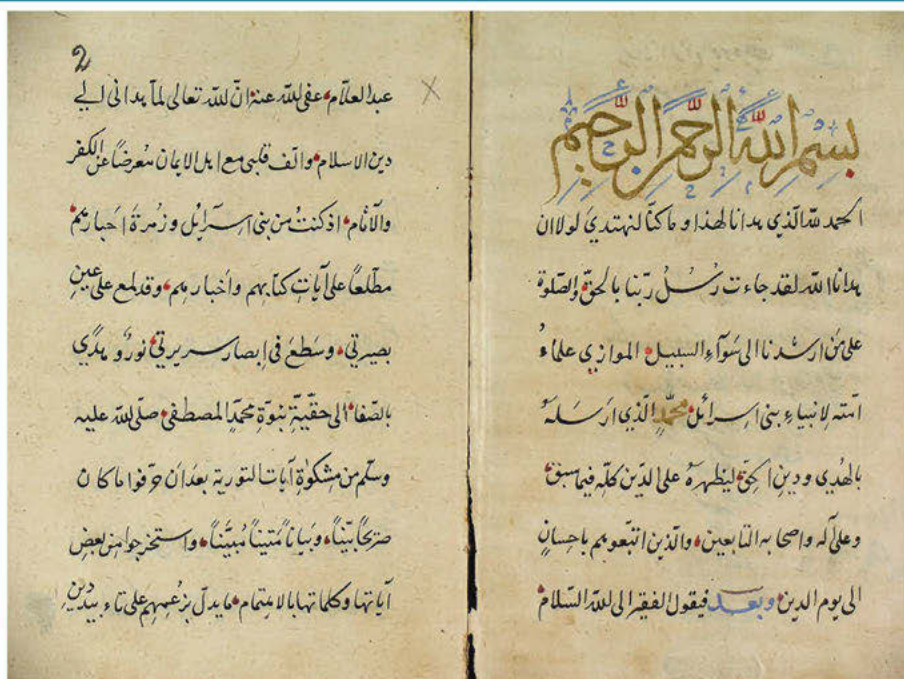 بسم الله الرحمن الرحيم
الحمد لله الذي هدانا لهذا وما كنا لنهتدي لولا ان
هدانا الله لقد جاءت رُسُلُ ربّنا بالحق والصلوة
على من ارشدنا الى سَوآءِ السبيل الموازي علماءُ
امّته لانبياءِ بنى اسرائل محمّدٍ الّذي ارسَلهُ
بالهُدي ودينِ الحقّ ليظهرهُ على الدّين كلّه فيما سبق
وعلى آله واصحابه التابعين والّذين اتبعوهم باحسانٍ
الى يوم الدين وبعد فيقول الفقير الى الله السّلام
2
عبد العلاّم عفى الله عنه انّ الله تعالى لمّا هدانى الي
دين الاسلام والّف قلبى مع اهل الايمان مُعرضاً عن الكفر
والآثام اذ كنتُ من بنى اسرائل وزُمرةِ احبارهم
مطلعاً على آياتِ كتابهم وأخبارهم وقد لمع على عينِ
بصيرتي وسَطَعَ فى ابصار سريرتي نورٌ وهدًي
بالصّفا الى حقّيّةِ نبوّة محمّدٍ المصطفى صلى الله عليه
وسلّم من مشكوٰةِ آيات التورية بعد أن حرّفوا ما كان
صريحًا بيّناً وبَياناً مُتيناً مُبيَّناً واستخرجوا من بعض
آياتها وكلماتها بالاهتمام ما يدلّ بزعمهم على تاءبيد دينهم